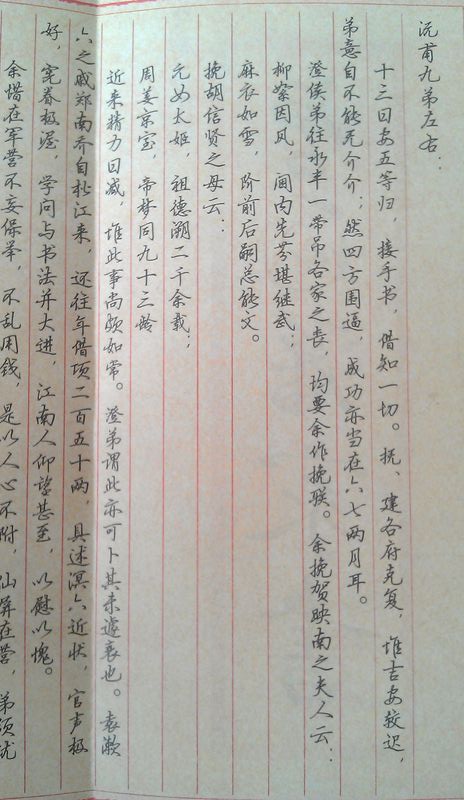 沅甫九弟左右：
十三日安五等归，接手书，借知一切。抚、建各府克复，惟吉安较迟，
弟意自不能无介介；然四方围逼，成功亦当在六七两月耳。
澄侯弟往永丰一带吊各家之丧，均要余作挽联。余挽贺映南之夫人云：
柳絮因风，阃内先芬堪继武；
麻衣如雪，阶前后嗣总能文。
挽胡信贤之母云：
元女太姬，祖德溯二千余载；
周姜京室，帝梦同九十三龄
近来精力日减，惟此事尚颇如常。澄弟谓此亦可卜其未遽衰也。袁漱
六之戚郑南乔自松江来，还往年借项二百五十两，具述溟六近状，官声极
好，宪眷极渥，学问与书法并大进，江南人仰望甚至，以慰以愧。
余惜在军营不妄保举，不乱用钱，是以人心不附，仙屏在营，弟须优